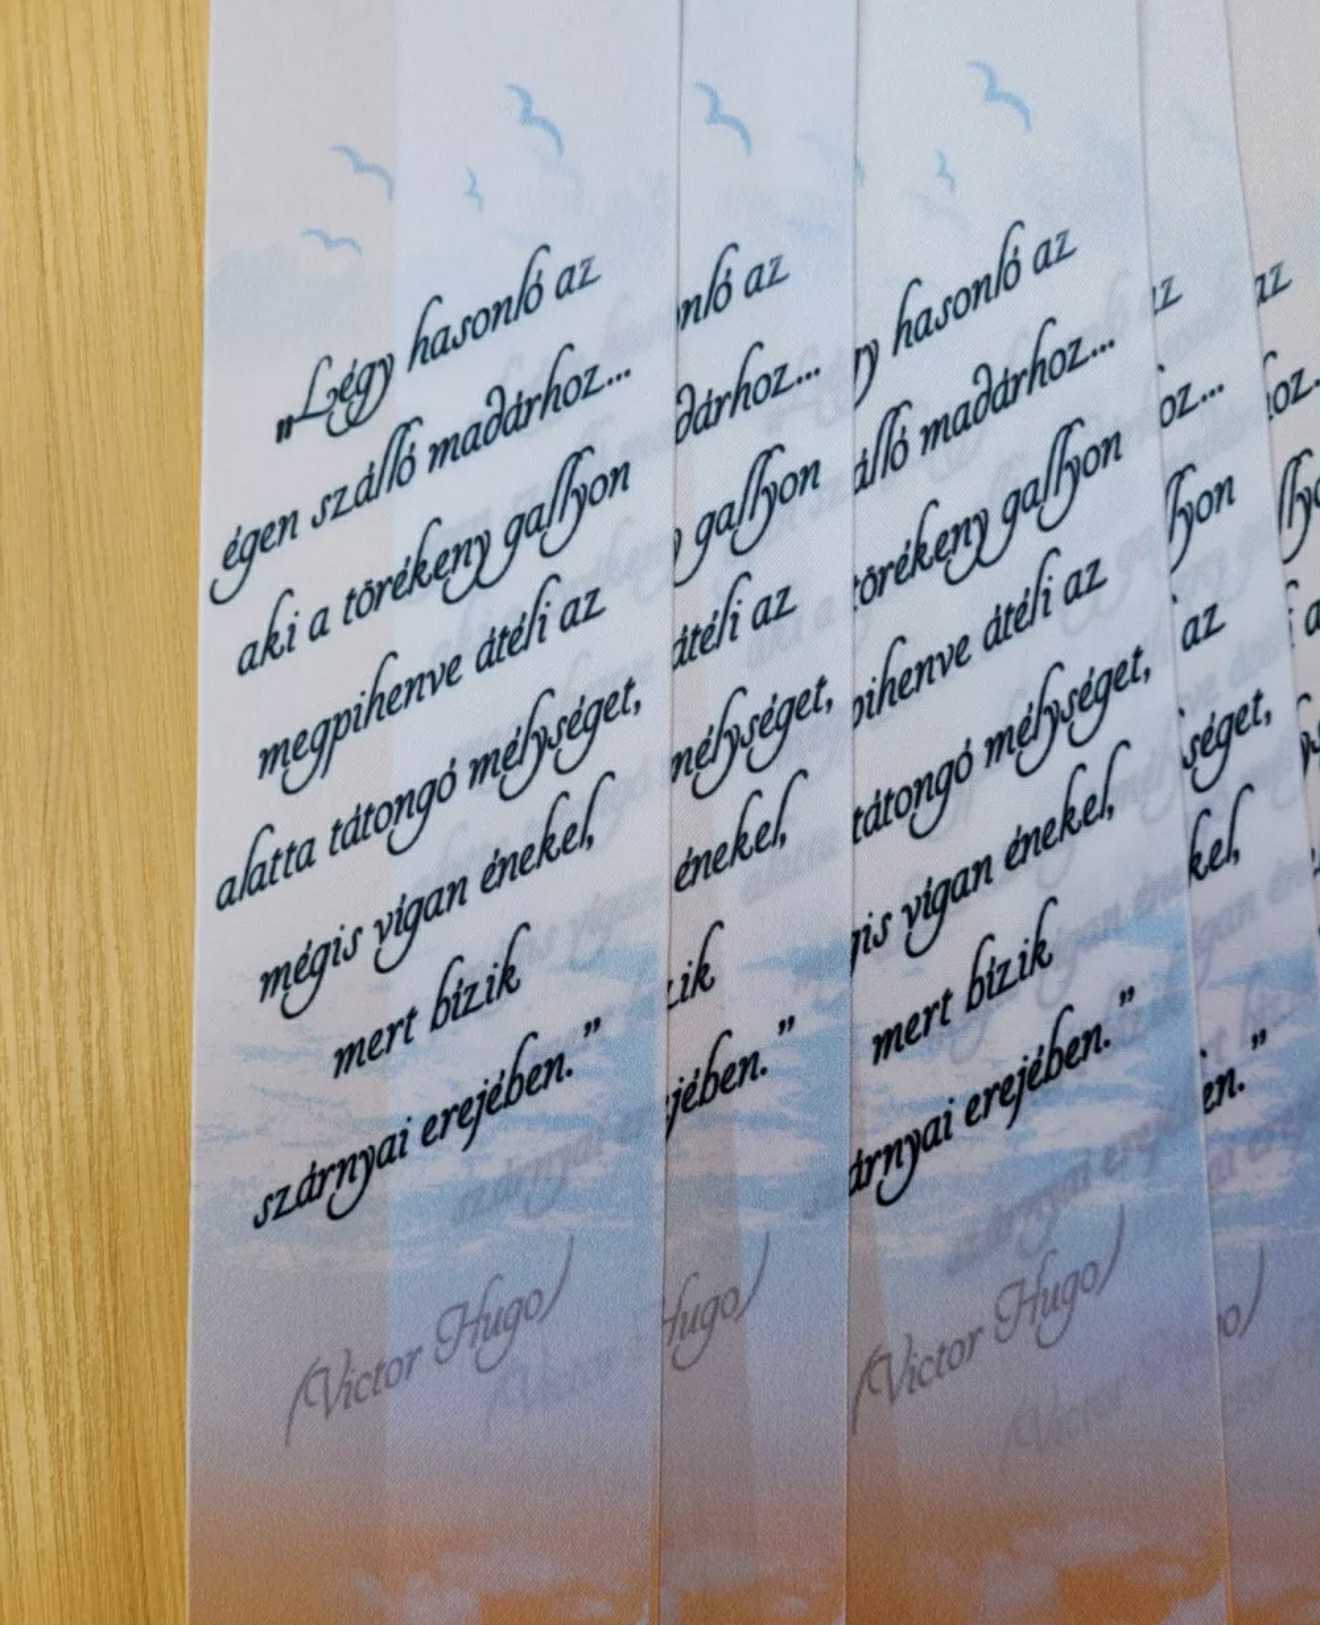 „Légy hasonló az
égen szálló madárhoz...
aki a törékeny gallyon
megpihenve átéli az
alatta tátongó mélységet,
mégis vígan énekel,
mert bízik
szárnyai erejében.”
(Victor Hugo)
nló az
dárhoz...
gallyon
átéli az
mélységet,
énekel,
zik
jében.”
Hugo)
gy hasonló az
álló madárhoz...
törékeny gallyon
pihenve átéli az
tátongó mélységet,
gis vígan énekel,
mert bízik
árnyai erejében.”
(Victor Hugo)
az
oz...
llyon
az
séget,
kel,
en.”
o)
az
oz.